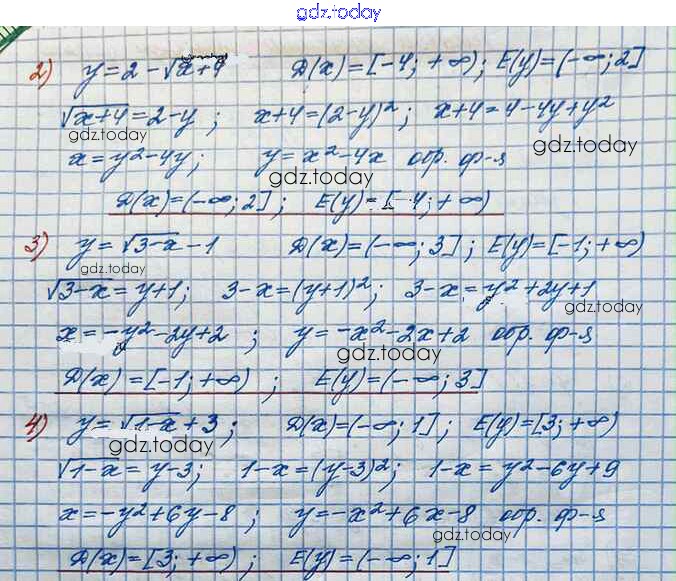 gdz.today
2) y = 2 - √x+4 D(x) = [-4; +∞); E(y) = (-∞; 2]
√x+4 = 2-y ; x+4 = (2-y)² ; x+4 = 4-4y+y²
gdz.today
gdz.today
x = y²-4y ; y = x²-4x обр. ф-я
gdz.today
D(x) = (-∞; 2] ; E(y) = [-4; +∞)
3) y = √3-x - 1 D(x) = (-∞; 3] ; E(y) = [-1; +∞)
gdz.today
√3-x = y+1; 3-x = (y+1)² ; 3-x = y²+2y+1
gdz.today
x = -y²-2y+2 ; y = -x²-2x+2 обр. ф-я
gdz.today
D(x) = [-1; +∞) ; E(y) = (-∞; 3]
4) y = √1-x + 3 ; D(x) = (-∞; 1] ; E(y) = [3; +∞)
gdz.today
√1-x = y-3; 1-x = (y-3)² ; 1-x = y²-6y+9
x = -y²+6y-8 ; y = -x²+6x-8 обр. ф-я
gdz.today
D(x) = [3; +∞) ; E(y) = (-∞; 1]